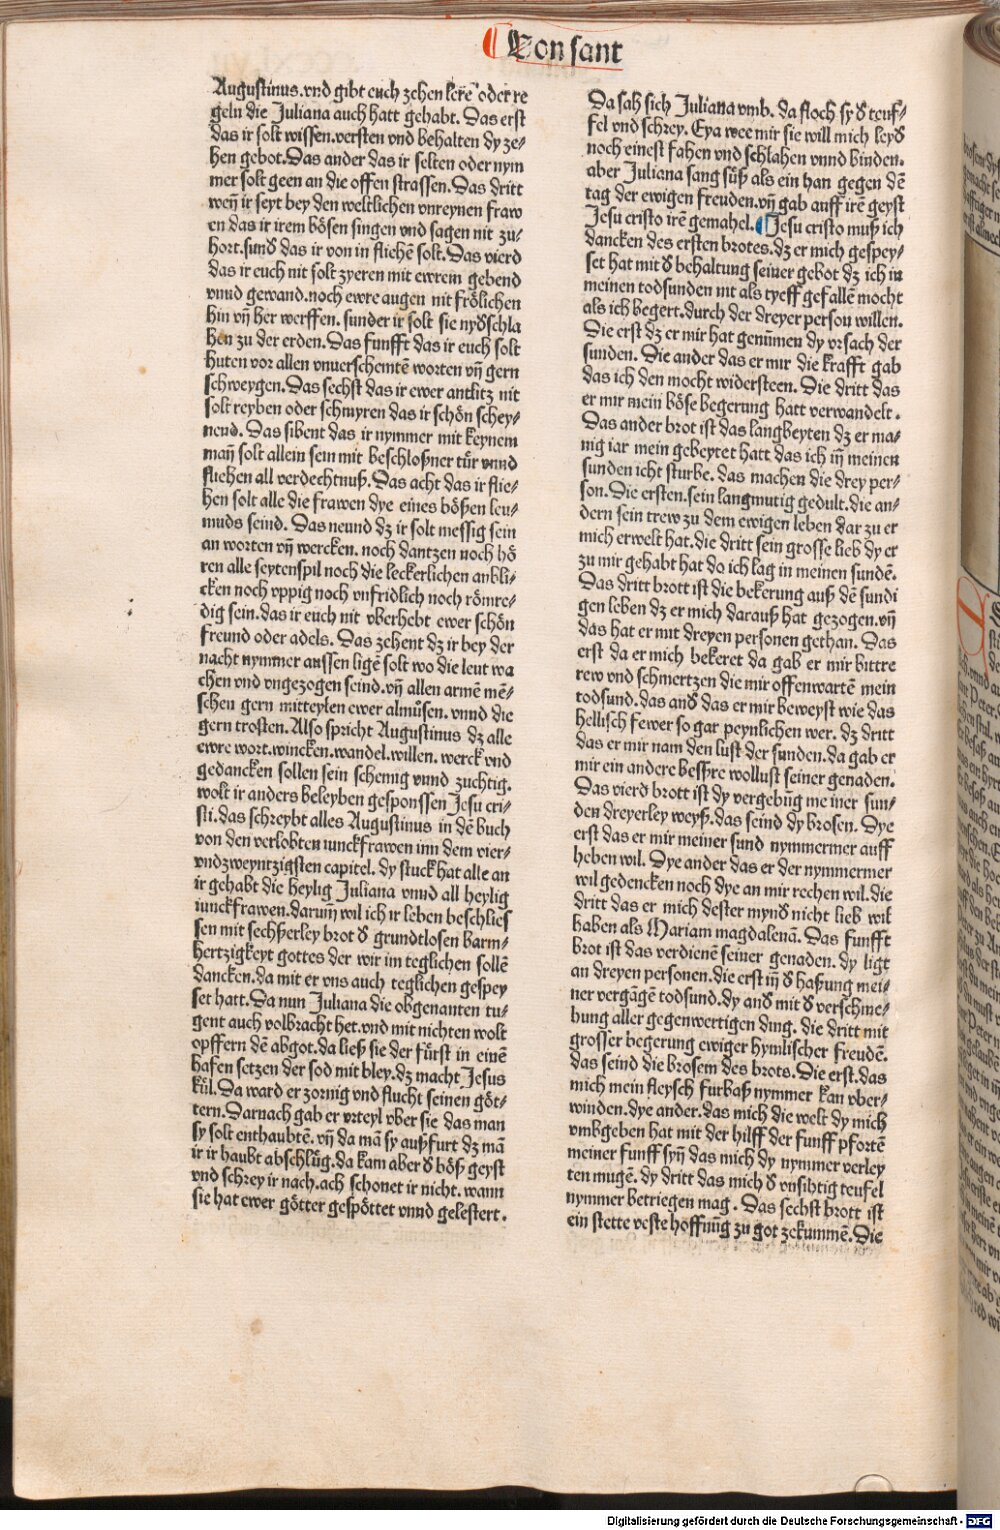 Von sant
Augustinus.vnd gibt euch zehen lere᷑ oder re
geln die Juliana auch hatt gehabt. Das erst
das ir solt wissen.versten vnd behalten dy ze⸗
hen gebot.Das ander das ir selten oder nym
mer solt geen an die offen strassen.Das dritt
weñ ir seyt bey den weltlichen vnreynen fraw
en das ir irem bösen singen vnd sagen nit zu⸗
hort.sund̄ das ir von in fliehē solt.Das vierd
das ir euch nit solt zyeren mit ewrem gebend
vnnd gewand.noch ewre augen nit frölichen
hin vñ her werffen. sunder ir solt sie nyd̄schla
hen zu der erden.Das funfft das ir euch solt
huten vor allen vnuerschemtē worten vñ gern
schweygen.Das sechst das ir ewer antlitz nit
solt reyben oder schmyren das ir schön schey⸗
nend. Das sibent das ir nymmer mit keynem
mañ solt allein sein mit beschloßner tür vnnd
fliehen all verdechtnuß.Das acht das ir flie⸗
hen solt alle die frawen dye eines bößen leu⸗
muds seind. Das neund dz ir solt messig sein
an worten vñ wercken. noch dantzen noch hö
ren alle seytenspil noch die leckerlichen anbli⸗
cken noch vppig noch vnfridlich noch römre⸗
dig sein.das ir euch nit vberhebt ewer schön
freund oder adels. Das zehent dz ir bey der
nacht nymmer aussen ligē solt wo die leut wa
chen vnd vngezogen seind.vñ allen armē mē⸗
schen gern mitteylen ewer almůsen. vnnd die
gern trosten. Also spricht Augustinus dz alle
ewre wort.wincken.wandel.willen. werck vnd
gedancken sollen sein schemig vnnd zuchtig.
wolt ir anders beleyben gesponssen Jesu cri⸗
sti.das schreybt alles Augustinus in dē buch
von den verlobten iunckfrawen inn dem vier⸗
vndzweyntzigsten capitel. dy stuck hat alle an
ir gehabt die heylig Juliana vnnd all heylig
iunckfrawen.darum̄ wil ich ir leben beschlies
sen mit sechßerley brot d̄ grundtlosen barm⸗
hertzigkeyt gottes der wir im teglichen sollē
dancken.da mit er vns auch teglichen gespey
set hatt.Da nun Juliana die obgenanten tu⸗
gent auch volbracht het.vnd mit nichten wolt
opffern dē abgot.da ließ sie der fürst in einē
hafen setzen der sod mit bley.dz macht Jesus
kůl. Da ward er zornig vnd flucht seinen göt⸗
tern.Darnach gab er vrteyl vber sie das man
sy solt enthaubtē. vñ da mā sy außfurt dz mā
ir ir haubt abschlůg.da kam aber d̄ böß geyst
vnd schrey ir nach.ach schonet ir nicht. wann
sie hat ewer götter gespöttet vnnd gelestert.
Da sah sich Juliana vmb. da floch sy d̄ teuf⸗
fel vnd schrey. Eya wee mir sie will mich leyd̄
noch einest fahen vnd schlahen vnnd binden.
aber Juliana sang sůß als ein han gegen dē
tag der ewigen freuden.vñ gab auff irē geyst
Jesu cristo irē gemahel. Jesu cristo muß ich
dancken des ersten brotes.dz er mich gespey⸗
set hat mit d̄ behaltung seiner gebot dz ich in
meinen todsunden nit als tyeff gefallē mocht
als ich begert.durch der dreyer person willen.
Die erst dz er mir hat genūmen dy vrsach der
sunden. Die ander das er mir die krafft gab
das ich den mocht widersteen. Die dritt das
er mir mein böse begerung hatt verwandelt.
Das ander brot ist das langbeyten dz er ma⸗
nig iar mein gebeytet hatt das ich iñ meinen
sunden icht sturbe. das machen die drey per⸗
son. Die ersten.sein langmutig gedult.die an⸗
dern sein trew zu dem ewigen leben dar zu er
mich erwelt hat.die dritt sein grosse lieb dy er
zu mir gehabt hat do ich lag in meinen sundē.
Das dritt brott ist die bekerung auß dē sundi
gen leben dz er mich darauß hat gezogen.vñ
das hat er mit dreyen personen gethan. Das
erst da er mich bekeret da gab er mir bittre
rew vnd schmertzen die mir offenwartē mein
todsund.das and̄ das er mir beweyst wie das
hellisch fewer so gar peynlichen wer. dz dritt
das er mir nam den lust der sunden.da gab er
mir ein andere beßre wollust seiner genaden.
Das vierd brott ist dy vergebūg meiner sun⸗
den dreyerley weyß.das seind dy brosen. Dye
erst das er mir meiner sund nymmermer auff
heben wil. Dye ander das er der nymmermer
wil gedencken noch dye an mir rechen wil.die
dritt das er mich dester mynd̄ nicht lieb wil
haben als Mariam magdalenā. Das funfft
brot ist das verdienē seiner genaden. dy ligt
an dreyen personen.die erst iñ d̄ haßung mei⸗
ner vergāgē todsund.dy and̄ mit d̄ verschme⸗
hung aller gegenwertigen ding. die dritt mit
grosser begerung ewiger hymlischer freudē.
das seind die brosem des brots. Die erst.das
mich mein fleysch furbaß nymmer kan vber⸗
winden.dye ander.das mich die welt dy mich
vmbgeben hat mit der hilff der funff pfortē
meiner funff syñ das mich dy nymmer verley
ten mugē. dy dritt das mich d̄ vnsihtig teufel
nymmer betriegen mag. Das sechst brott ist
ein stette veste hoffnūg zu got zekummē. Die
Digitalisierung gefördert durch die Deutsche Forschungsgemeinschaft - DFG